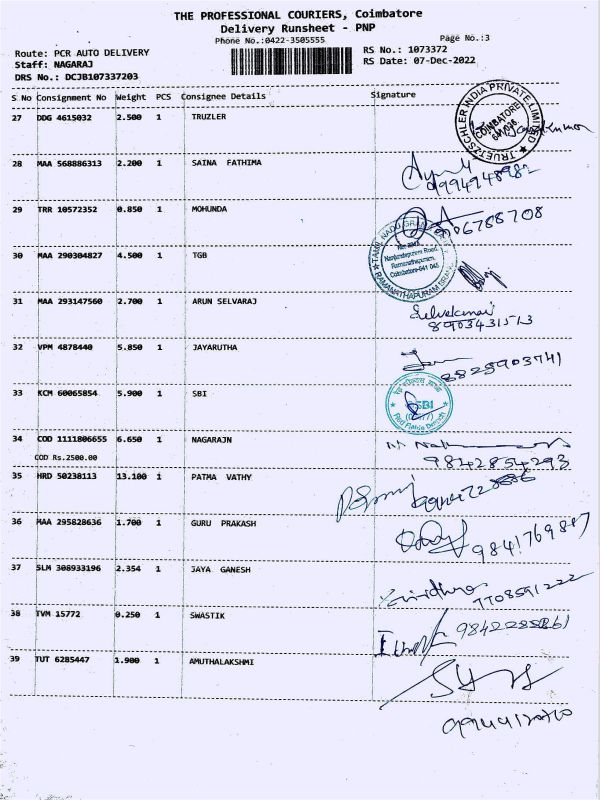 THE PROFESSIONAL COURIERS, Coimbatore
Delivery Runsheet - PNP
Phone No.:0422-3505555 Page No.:3
Route: PCR AUTO DELIVERY RS No.: 1073372
Staff: NAGARAJ RS Date: 07-Dec-2022
DRS No.: DCJB107337203
S No Consignment No Weight PCS Consignee Details Signature
27 DDG 4615032 2.500 1 TRUZLER
TRUETZSCHLER INDIA PRIVATE LIMITED
COIMBATORE
28 MAA 568886313 2.200 1 SAINA FATHIMA
9994948982
29 TRR 10572352 0.850 1 MOHUNDA
TAMIL NADU GRAMA
Nanjundapuram Road,
Ramanathapuram,
Coimbatore-641 045
RAMANATHAPURAM
30 MAA 290304827 4.500 1 TGB
31 MAA 293147560 2.700 1 ARUN SELVARAJ
Selvakumar
8903431513
32 VPM 4878440 5.850 1 JAYARUTHA
8825903741
33 KCM 60065854 5.900 1 SBI
SBI
Red Fields Branch
34 COD 1111806655 6.650 1 NAGARAJN
COD Rs.2500.00
9842854293
35 HRD 50238113 13.100 1 PATMA VATHY
36 MAA 295828636 1.700 1 GURU PRAKASH
9841769887
37 SLM 308933196 2.354 1 JAYA GANESH
7708591222
38 TVM 15772 0.250 1 SWASTIK
39 TUT 6285447 1.900 1 AMUTHALAKSHMI